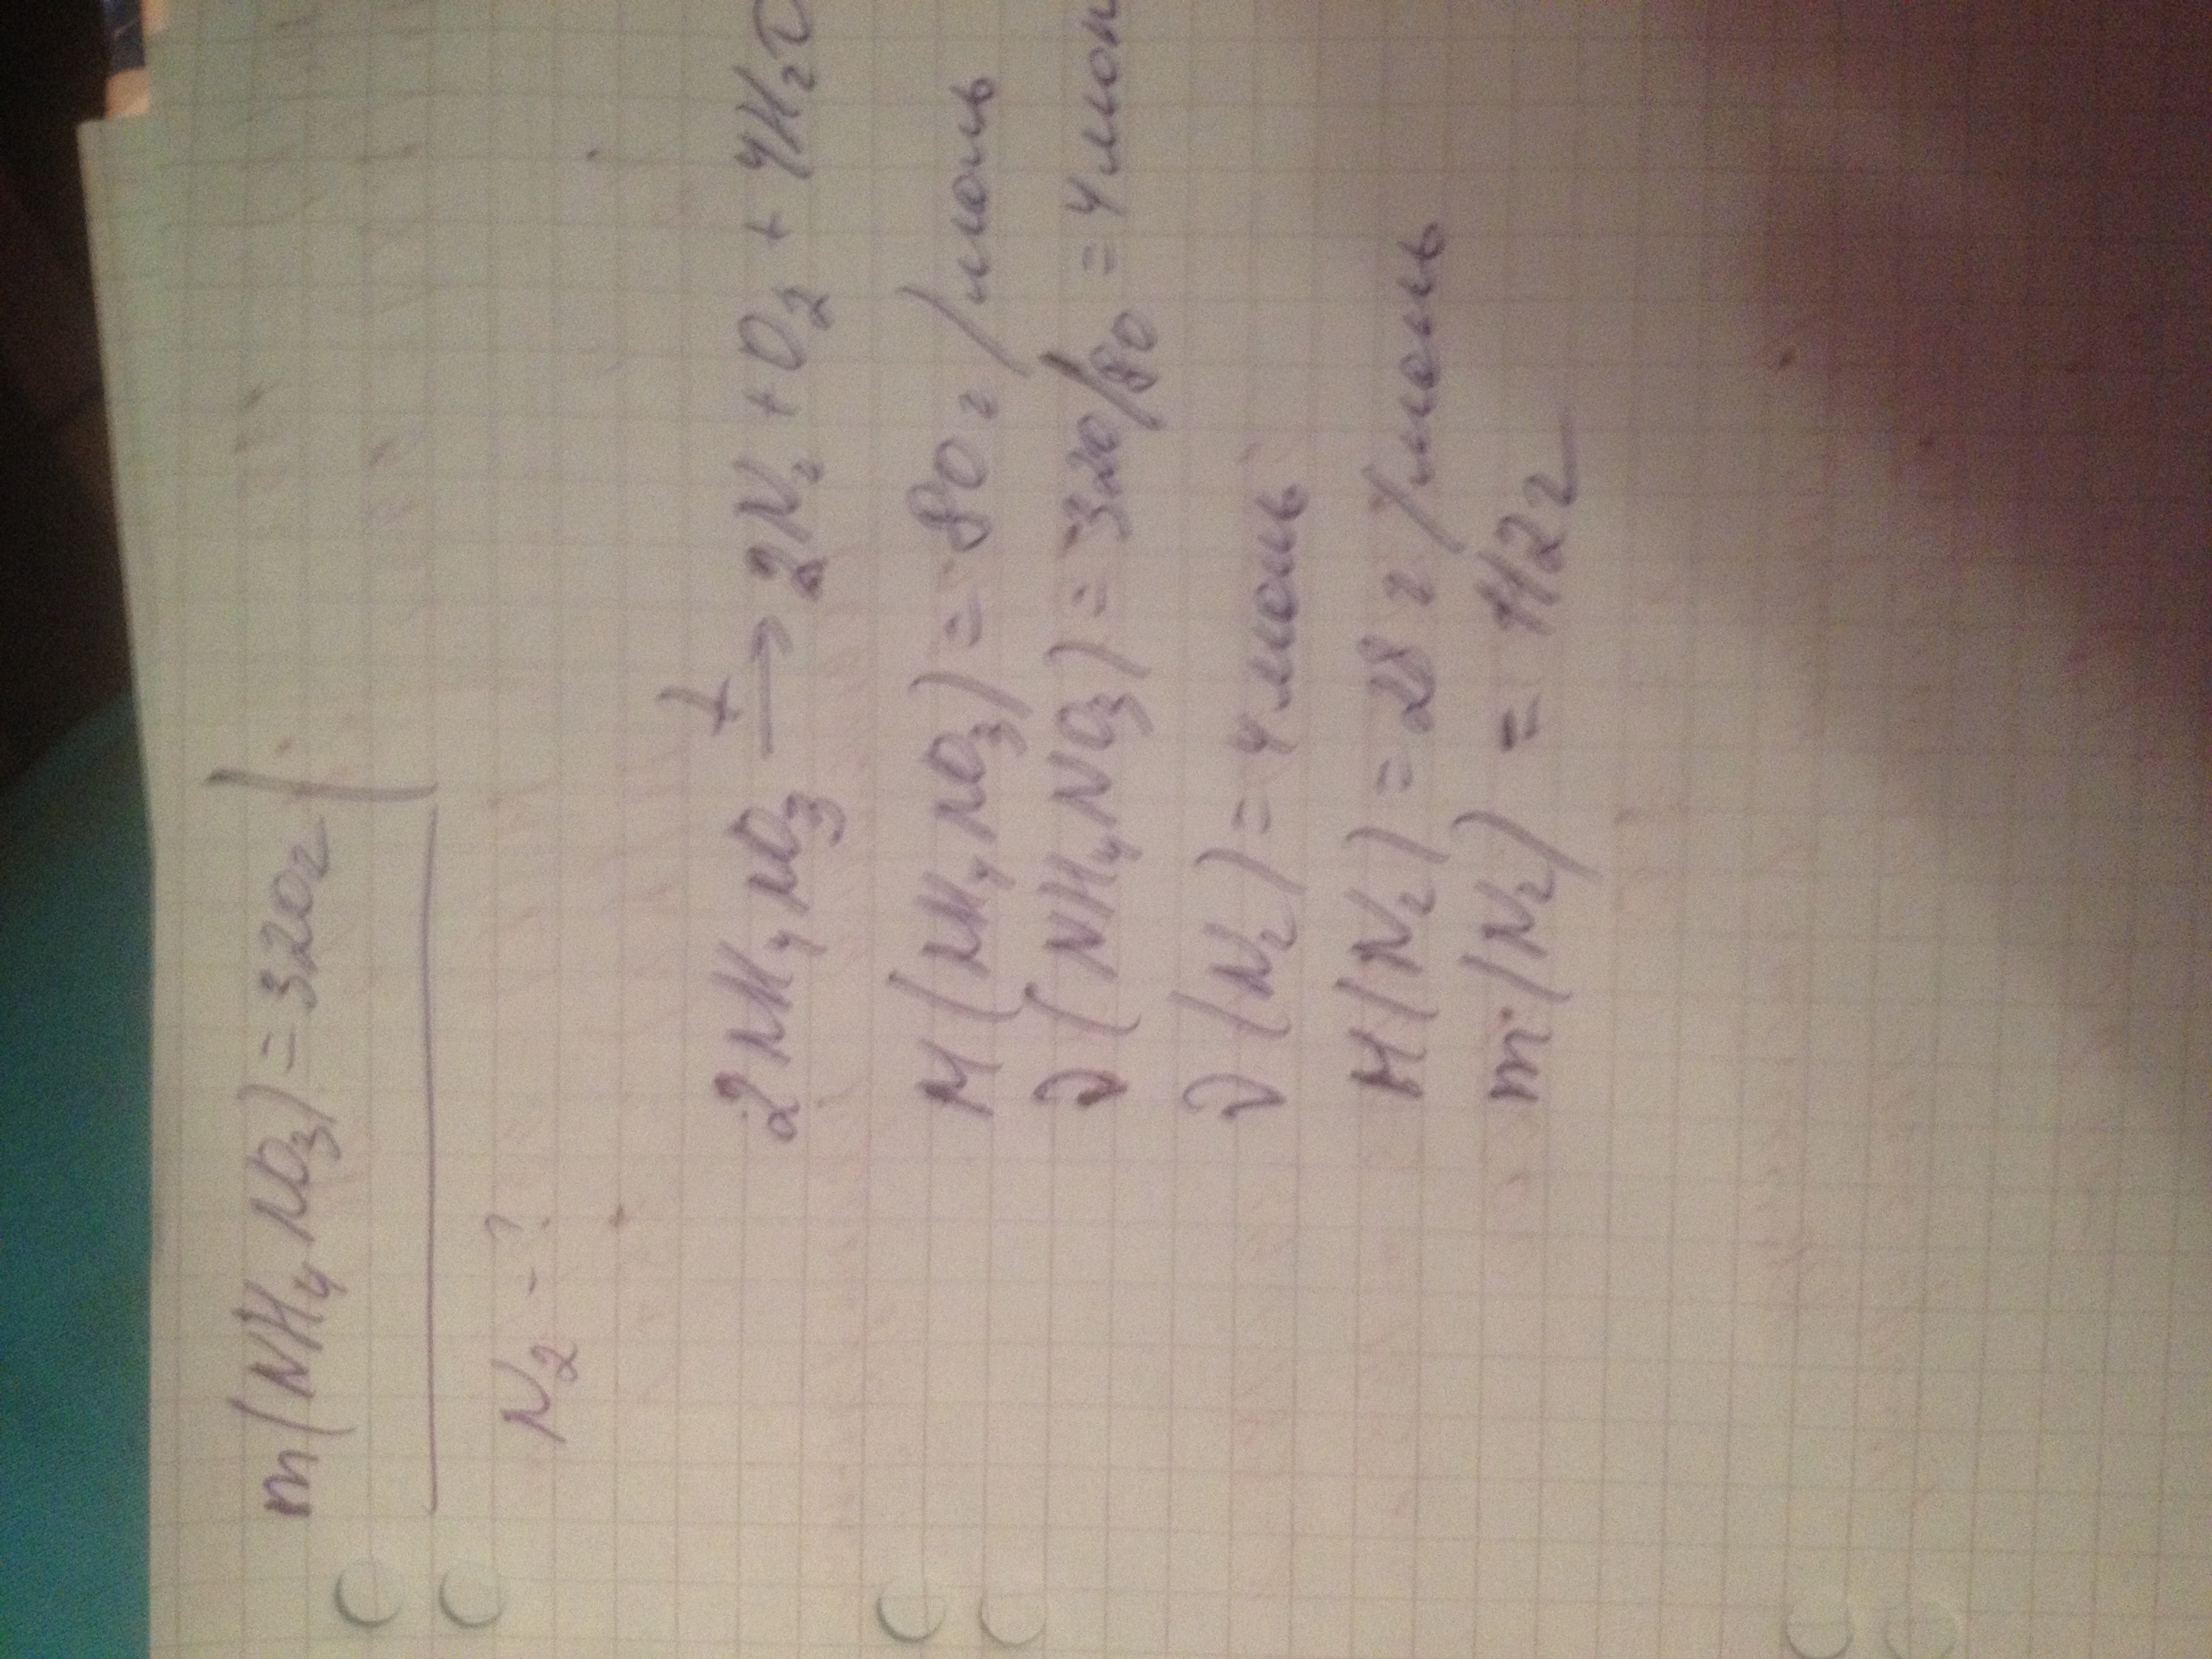 m(NH₄NO₃) = 320г
N₂ - ?
2NH₄NO₃ t→ 2N₂ + O₂ + 4H₂O
M(NH₄NO₃) = 80 г/моль
ν(NH₄NO₃) = 320/80 = 4 мол
ν(N₂) = 4 моль
M(N₂) = 28 г/моль
m(N₂) = 112 г